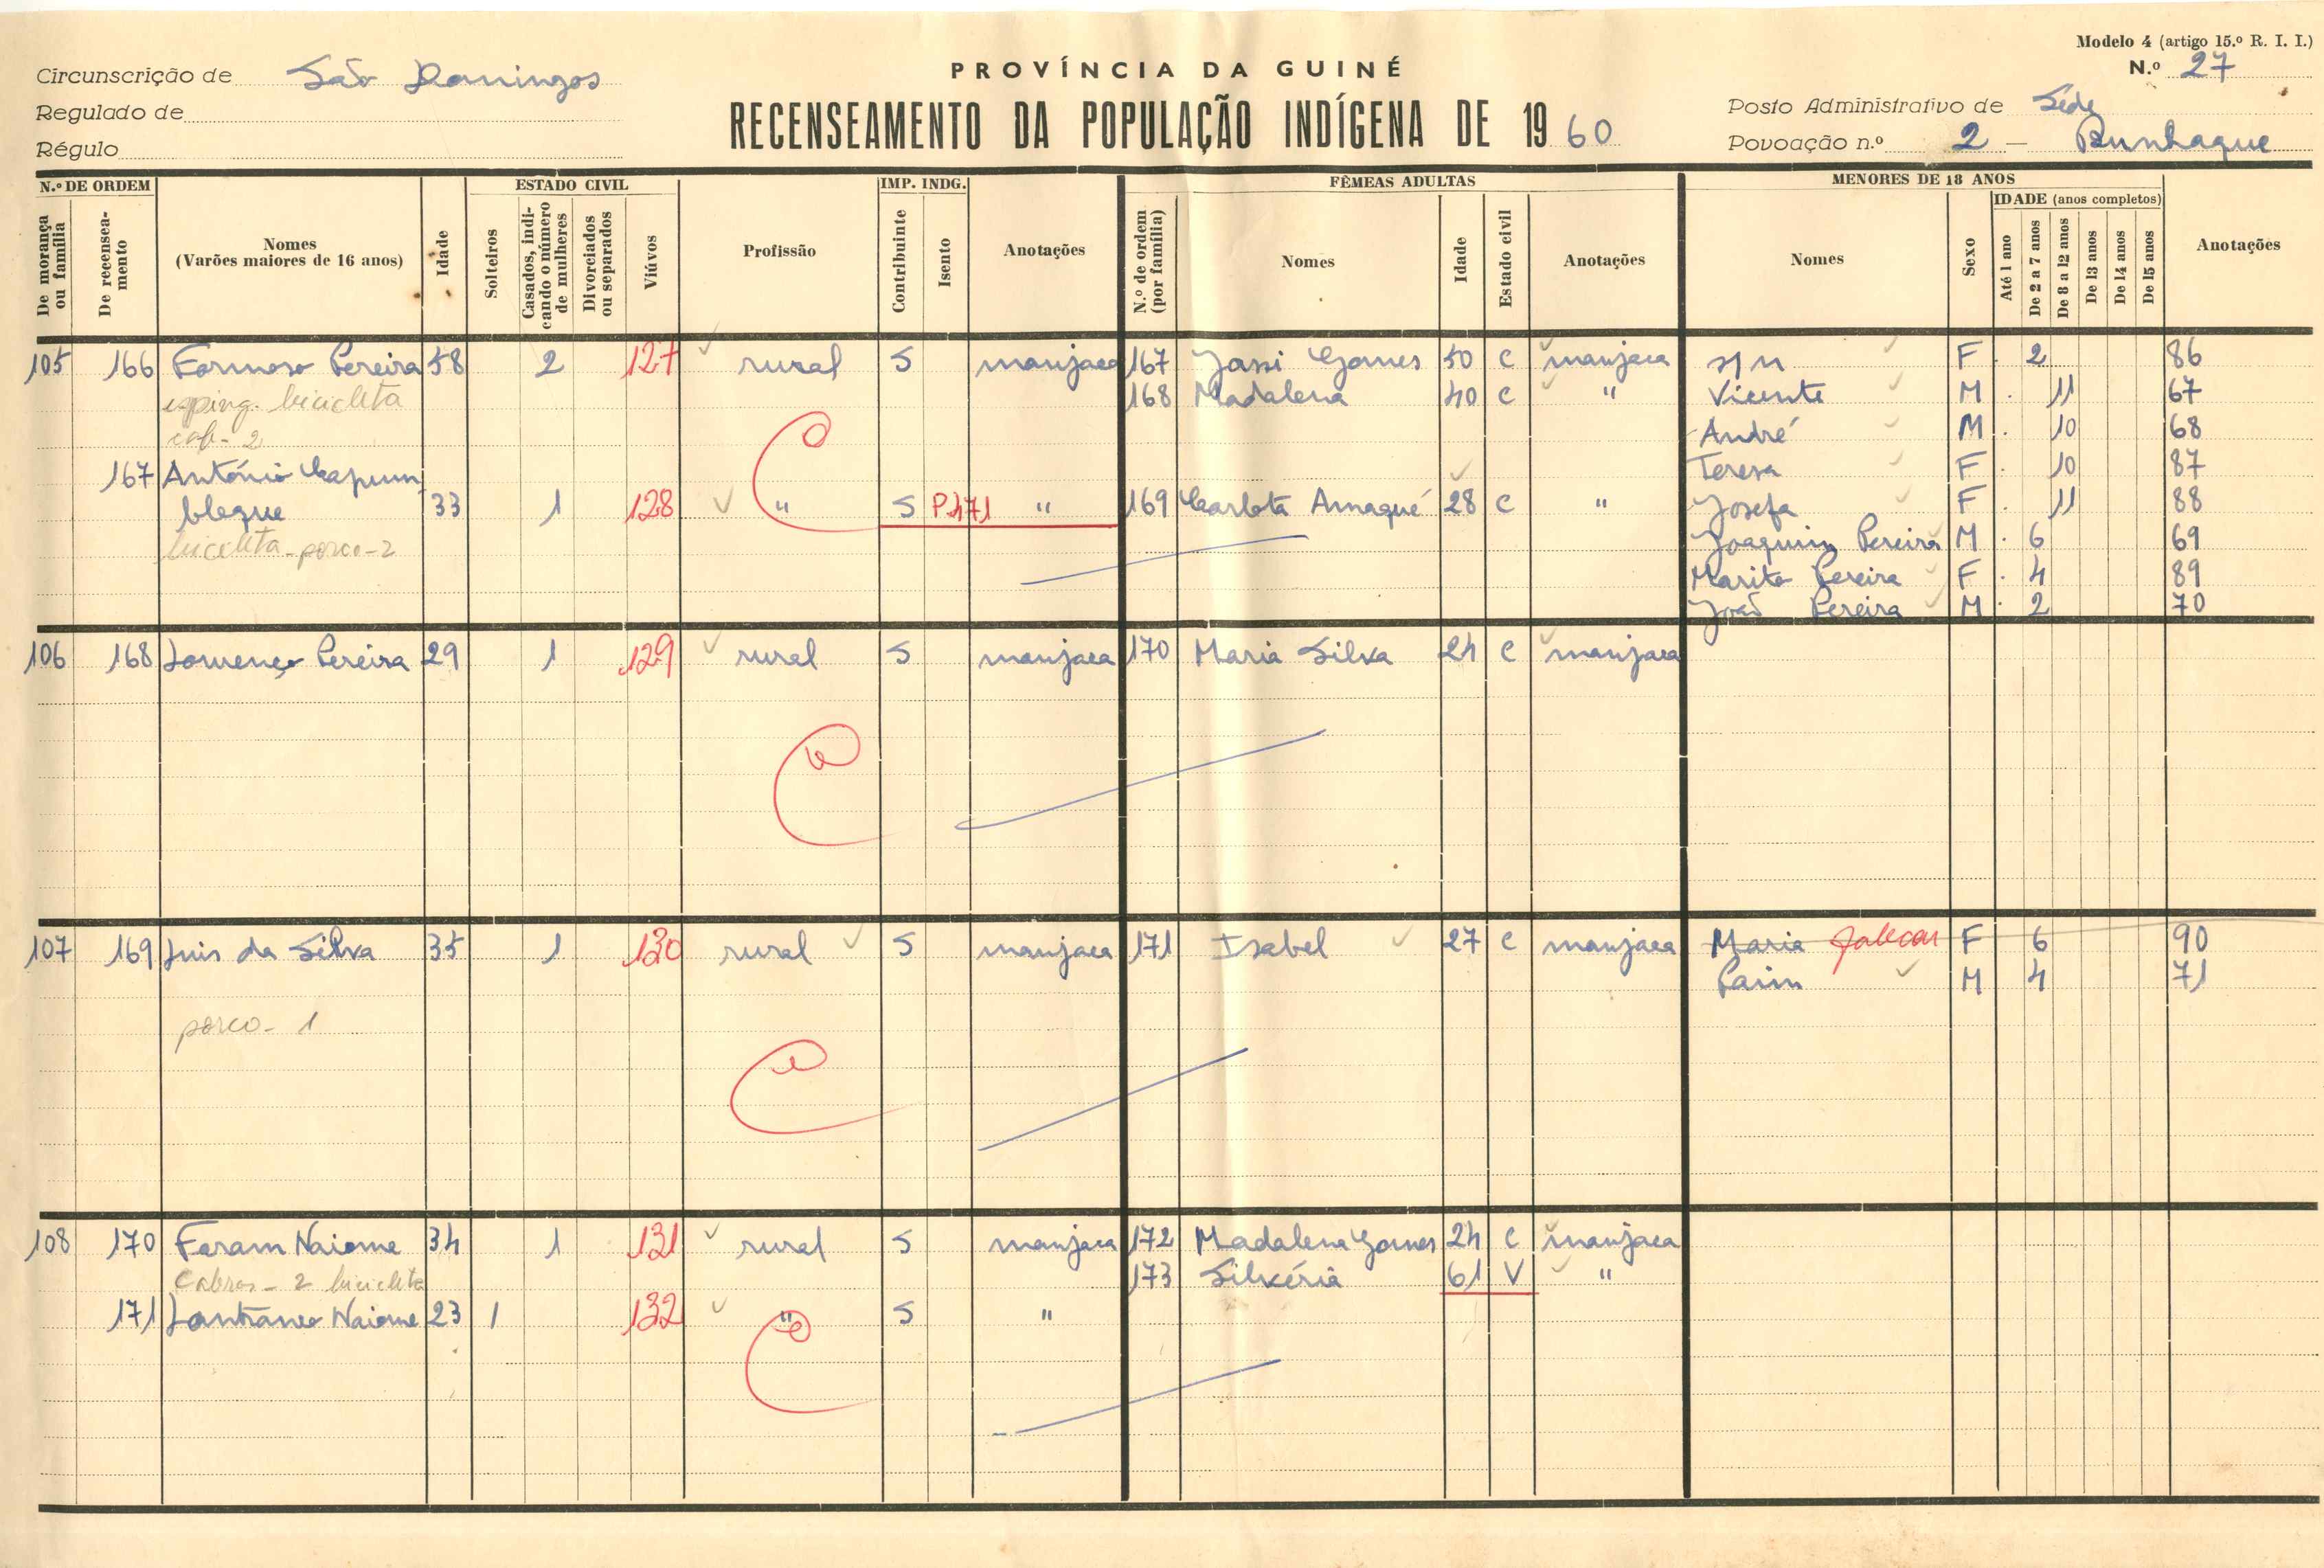 Modelo 4 (artigo 15.º R. I. I.)
PROVÍNCIA DA GUINÉ
N.º 27
Circunscrição de São Domingos
Regulado de
Régulo
RECENSEAMENTO DA POPULAÇÃO INDÍGENA DE 1960
Posto Administrativo de Séde
Povoação n.º 2 - Bunhaque
N.º DE ORDEM
De morança ou família
De recenseamento
Nomes
(Varões maiores de 16 anos)
Idade
ESTADO CIVIL
Solteiros
Casados, indicando o número de mulheres
Divorciados ou separados
Viúvos
Profissão
IMP. INDG.
Contribuinte
Isento
Anotações
FÊMEAS ADULTAS
N.º de ordem (por família)
Nomes
Idade
Estado civil
Anotações
MENORES DE 18 ANOS
Nomes
Sexo
IDADE (anos completos)
Até 1 ano
De 2 a 7 anos
De 8 a 12 anos
De 13 anos
De 14 anos
De 15 anos
Anotações
105 166 Formoso Pereira 58 2 127 rural S manjaca 167 Jassi Gomes 50 C manjaca s/n F 2 86
esping. bicicleta 168 Madalena 40 C " Vicente M 11 67
cab- 2 André M 10 68
167 António Teresa F 10 87
33 1 128 " S P.471 " 169 Carlota Amaqué 28 C " Josefa F 11 88
bicicleta - porco - 2 Joaquim Pereira M 6 69
Marito Pereira F 4 89
João Pereira M 2 70
106 168 Lourenço Pereira 29 1 129 rural S manjaca 170 Maria Silva 24 C manjaca
107 169 Luis da Silva 35 1 130 rural S manjaca 171 Isabel 27 C manjaca Maria faleceu F 6 90
Parim M 4 71
porco - 1
108 170 Faram Naiome 34 1 131 rural S manjaca 172 Madalena Gomes 24 C manjaca
Cabras - 2 bicicleta 173 Silvéria 61 V "
171 Naiome 23 1 132 " S "